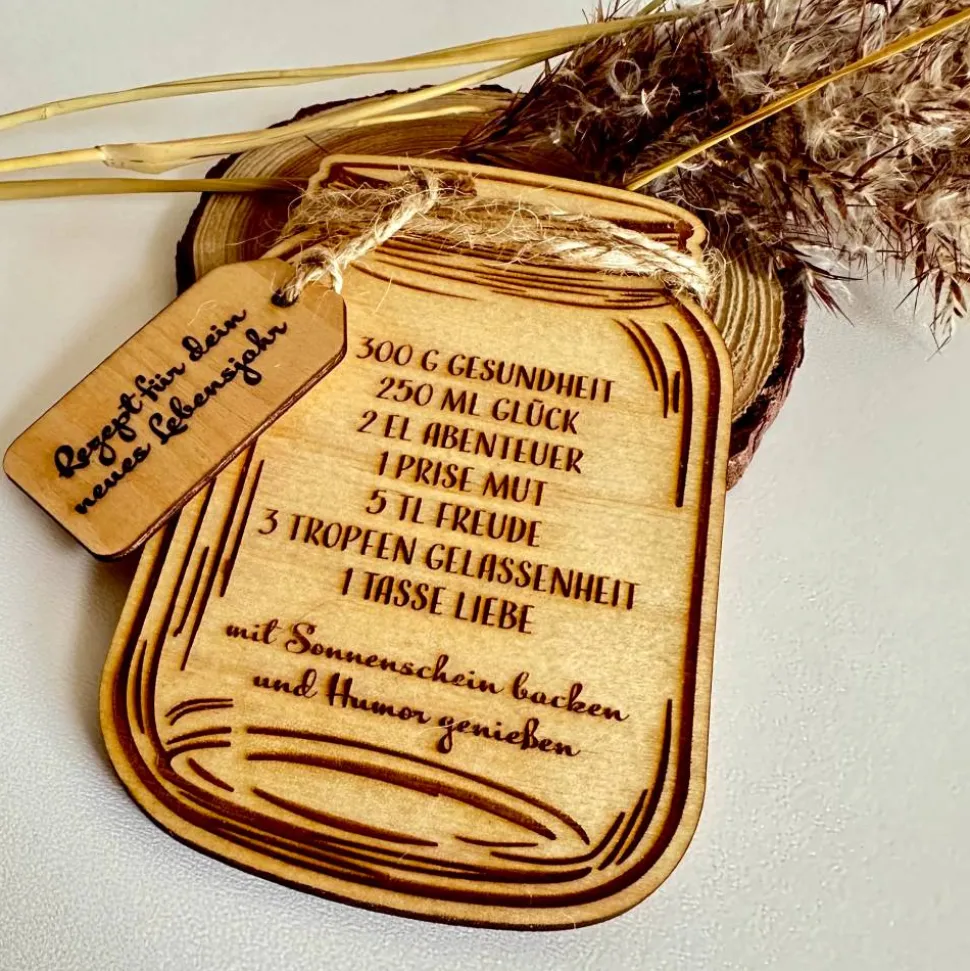 Rezept für dein
neues Lebensjahr
300 G GESUNDHEIT
250 ML GLÜCK
2 EL ABENTEUER
1 PRISE MUT
5 TL FREUDE
3 TROPFEN GELASSENHEIT
1 TASSE LIEBE
mit Sonnenschein backen
und Humor genießen